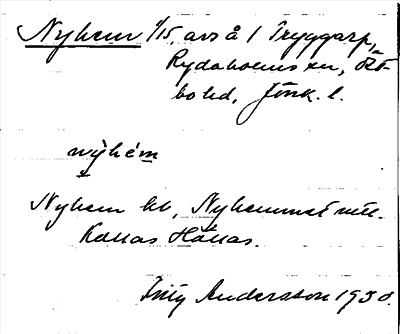 Nyhem 1/15, avs å 1 Tryggarp,
Rydaholms sn, Öst-
bo hd, Jönk. l.
nýhém
Nyhem kt, Nyhemmet vill.
Kallas Hållas.
Fritz Andersson 1930.